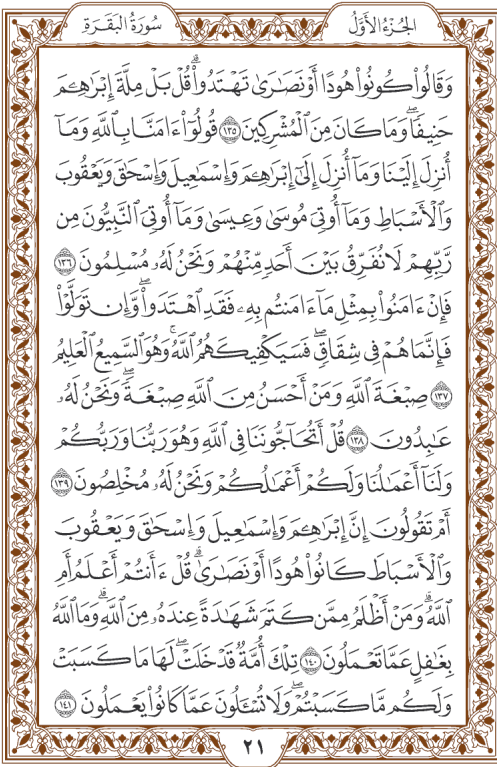 الجُزْءُ الأَوَّلُ
سُورَةُ البَقَرَةِ
وَقَالُواْ كُونُواْ هُودًا أَوۡ نَصَٰرَىٰ تَهۡتَدُواْۗ قُلۡ بَلۡ مِلَّةَ إِبۡرَٰهِـۧمَ
حَنِيفٗاۖ وَمَا كَانَ مِنَ ٱلۡمُشۡرِكِينَ ١٣٥ قُولُوٓاْ ءَامَنَّا بِٱللَّهِ وَمَآ
أُنزِلَ إِلَيۡنَا وَمَآ أُنزِلَ إِلَىٰٓ إِبۡرَٰهِـۧمَ وَإِسۡمَٰعِيلَ وَإِسۡحَٰقَ وَيَعۡقُوبَ
وَٱلۡأَسۡبَاطِ وَمَآ أُوتِيَ مُوسَىٰ وَعِيسَىٰ وَمَآ أُوتِيَ ٱلنَّبِيُّونَ مِن
رَّبِّهِمۡ لَا نُفَرِّقُ بَيۡنَ أَحَدٖ مِّنۡهُمۡ وَنَحۡنُ لَهُۥ مُسۡلِمُونَ ١٣٦
فَإِنۡ ءَامَنُواْ بِمِثۡلِ مَآ ءَامَنتُم بِهِۦ فَقَدِ ٱهۡتَدَواْۖ وَّإِن تَوَلَّوۡاْ
فَإِنَّمَا هُمۡ فِي شِقَاقٖۖ فَسَيَكۡفِيكَهُمُ ٱللَّهُۚ وَهُوَ ٱلسَّمِيعُ ٱلۡعَلِيمُ
١٣٧ صِبۡغَةَ ٱللَّهِ وَمَنۡ أَحۡسَنُ مِنَ ٱللَّهِ صِبۡغَةٗۖ وَنَحۡنُ لَهُۥ
عَٰبِدُونَ ١٣٨ قُلۡ أَتُحَآجُّونَنَا فِي ٱللَّهِ وَهُوَ رَبُّنَا وَرَبُّكُمۡ
وَلَنَآ أَعۡمَٰلُنَا وَلَكُمۡ أَعۡمَٰلُكُمۡ وَنَحۡنُ لَهُۥ مُخۡلِصُونَ ١٣٩
أَمۡ تَقُولُونَ إِنَّ إِبۡرَٰهِـۧمَ وَإِسۡمَٰعِيلَ وَإِسۡحَٰقَ وَيَعۡقُوبَ
وَٱلۡأَسۡبَاطَ كَانُواْ هُودًا أَوۡ نَصَٰرَىٰۗ قُلۡ ءَأَنتُمۡ أَعۡلَمُ أَمِ
ٱللَّهُۗ وَمَنۡ أَظۡلَمُ مِمَّن كَتَمَ شَهَٰدَةً عِندَهُۥ مِنَ ٱللَّهِۗ وَمَا ٱللَّهُ
بِغَٰفِلٍ عَمَّا تَعۡمَلُونَ ١٤٠ تِلۡكَ أُمَّةٞ قَدۡ خَلَتۡۖ لَهَا مَا كَسَبَتۡ
وَلَكُم مَّا كَسَبۡتُمۡۖ وَلَا تُسۡـَٔلُونَ عَمَّا كَانُواْ يَعۡمَلُونَ ١٤١
٢١